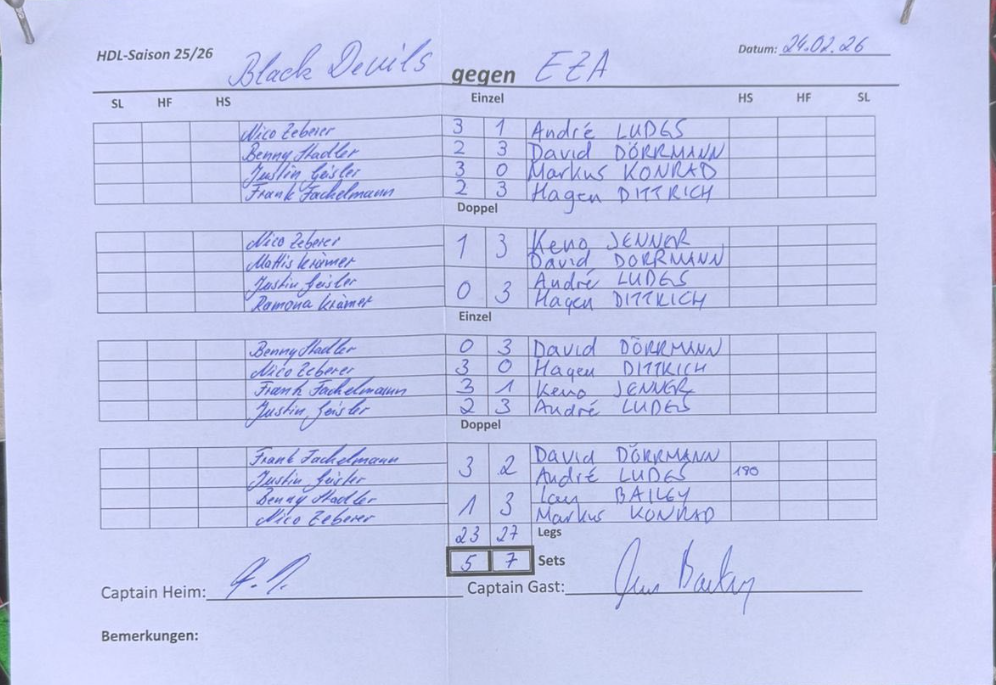 HDL-Saison 25/26 Black Devils gegen EZA Datum: 24.02.26
SL HF HS Einzel HS HF SL
Nico Zeberer 3 1 André LUDES
Benny Stadler 2 3 David DÖRRMANN
Justin Geisler 3 0 Markus KONRAD
Frank Fachelmann 2 3 Hagen DITTRICH
Doppel
Nico Zeberer 1 3 Keno JENNER
Mattis Krämer David DÖRRMANN
Justin Geisler 0 3 André LUDES
Ramona Krämer Hagen DITTRICH
Einzel
Benny Stadler 0 3 David DÖRRMANN
Nico Zeberer 3 0 Hagen DITTRICH
Frank Fachelmann 3 1 Keno JENNER
Justin Geisler 2 3 André LUDES
Doppel
Frank Fachelmann 3 2 David DÖRRMANN
Justin Geisler André LUDES 180
Benny Stadler 1 3 BAILEY
Nico Zeberer Markus KONRAD
23 27 Legs
5 7 Sets
Captain Heim: Captain Gast:
Bemerkungen: